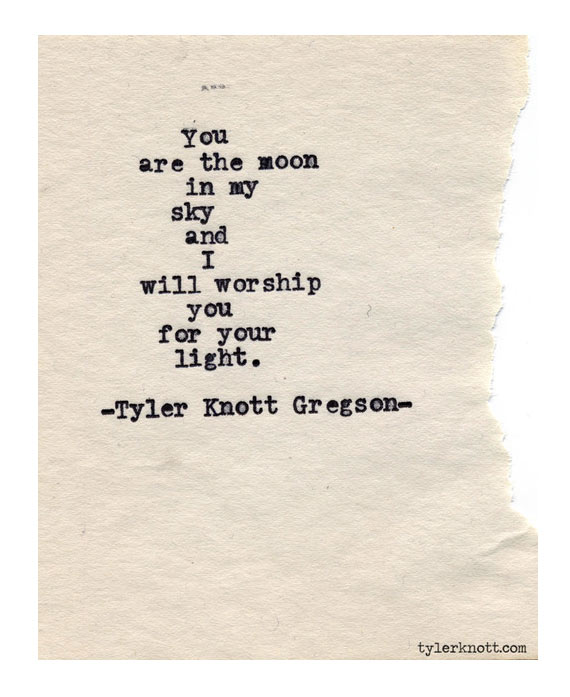 You
are the moon
in my
sky
and
I
will worship
you
for your
light.
-Tyler Knott Gregson-
tylerknott.com